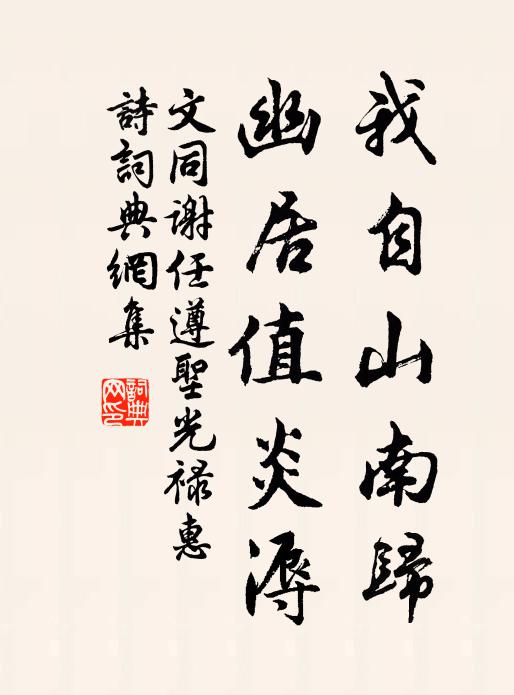 我自山南歸
幽居值炎溽
文同謝任遵聖光祿惠
詩詞典網集
詞典网印